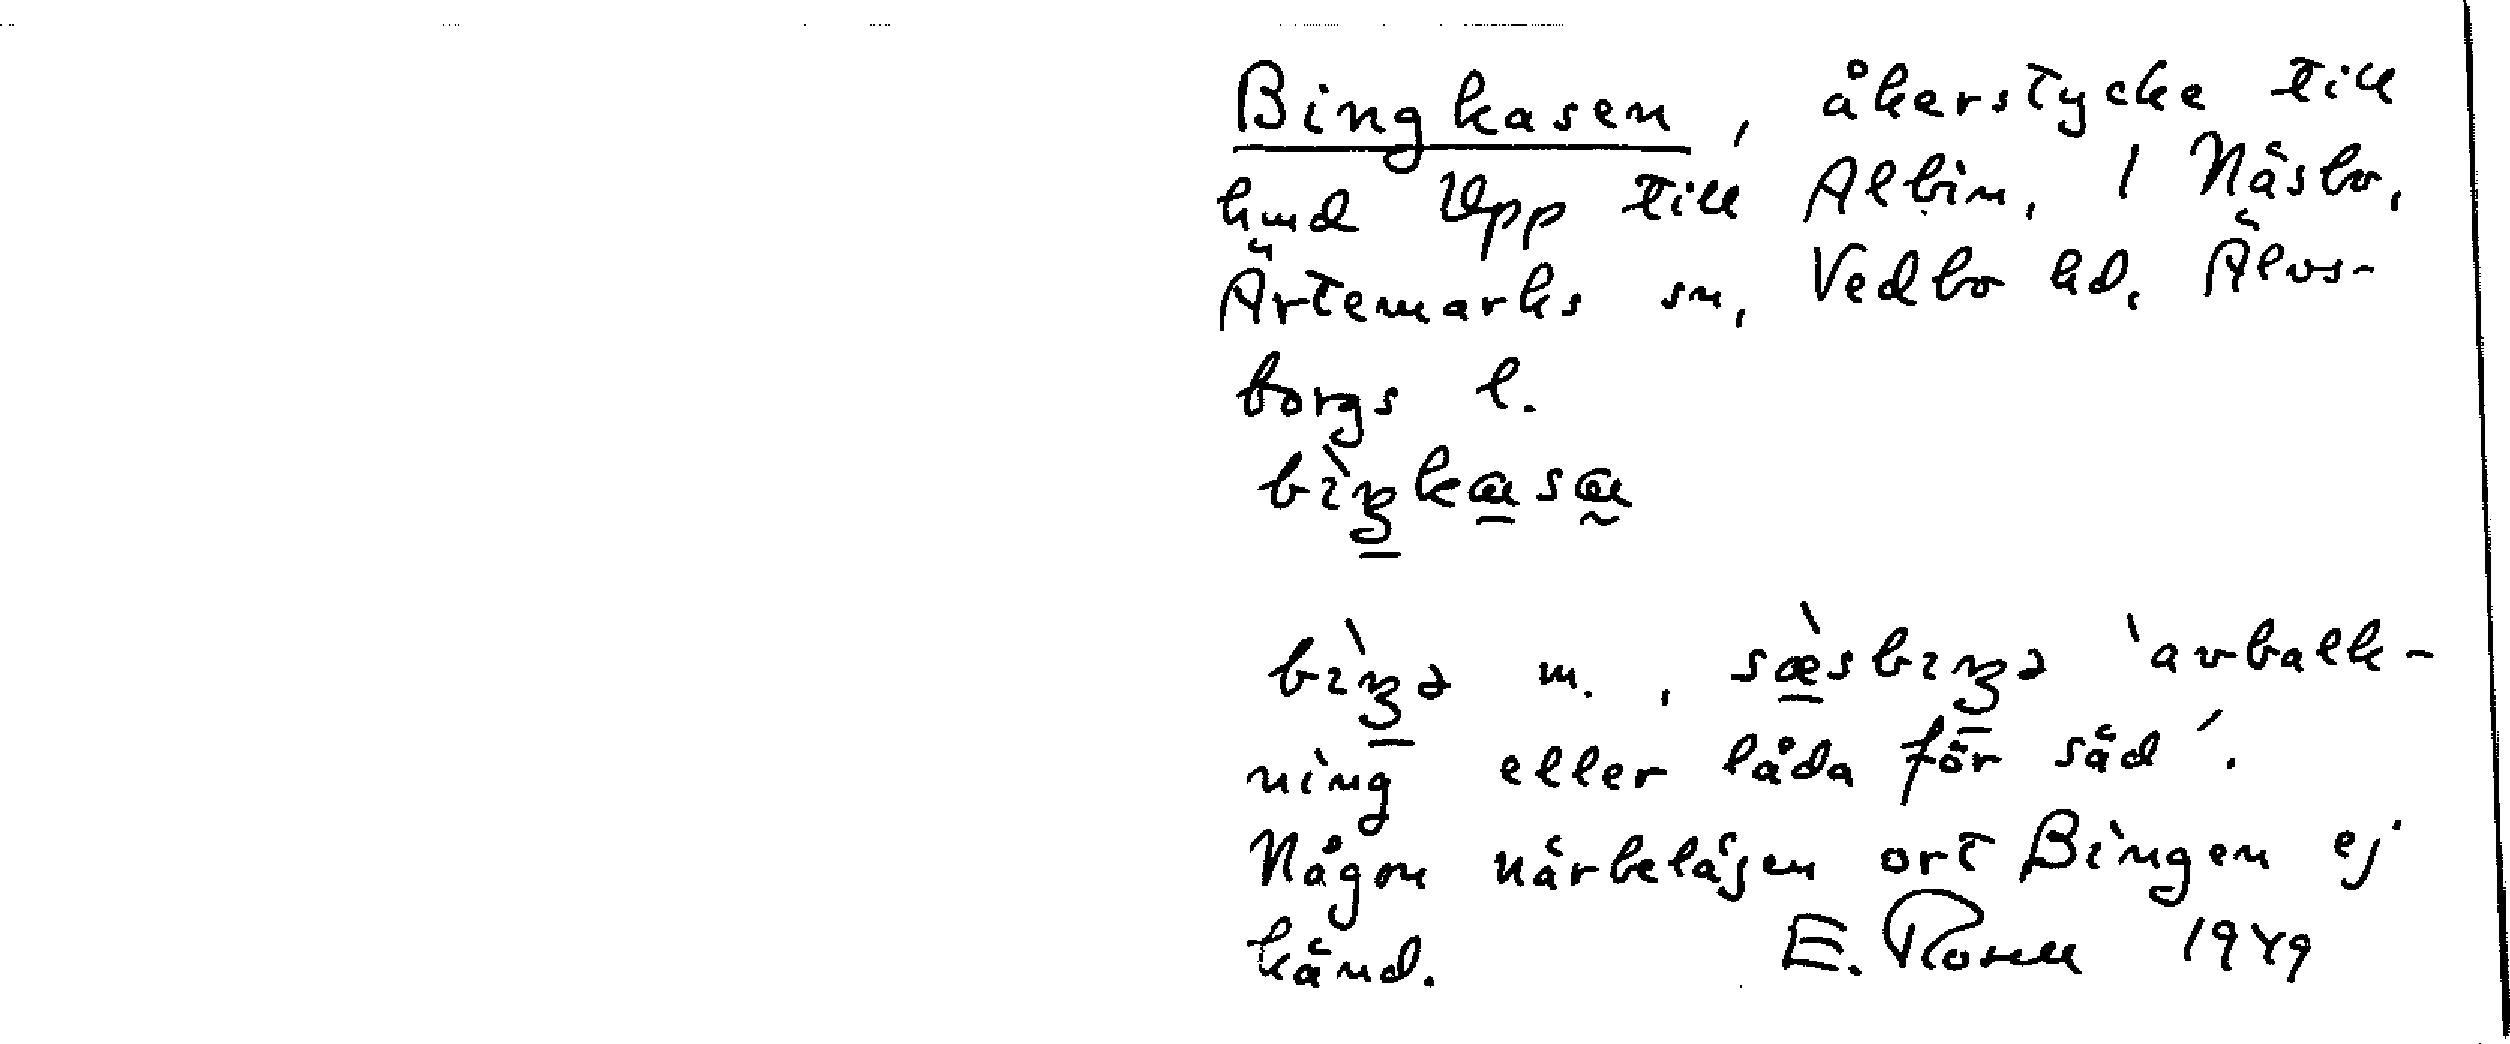 Bingkasen, åkerstycke till
hmd Upp till Albin, 1 Näsbo,
Ärtemarks sn, Vedbo hd, Älvs-
borgs l.
bìŋkasa
bìŋə m., sæ̀sbıŋə 'avbalk-
ning eller låda för säd'.
Någon närbelägen ort Bingen ej
känd. E. Rosell 1949